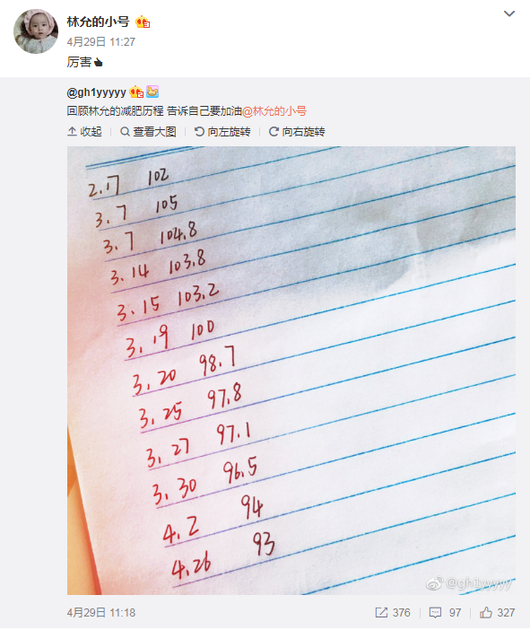 林允的小号
4月29日 11:27
厉害
@gh1yyyyy
回顾林允的减肥历程 告诉自己要加油@林允的小号
收起 查看大图 向左旋转 向右旋转
2.17 102
3.7 105
3.7 104.8
3.14 103.8
3.15 103.2
3.19 100
3.20 98.7
3.25 97.8
3.27 97.1
3.30 96.5
4.2 94
4.26 93
@gh1yyyyy
4月29日 11:18 376 97 327